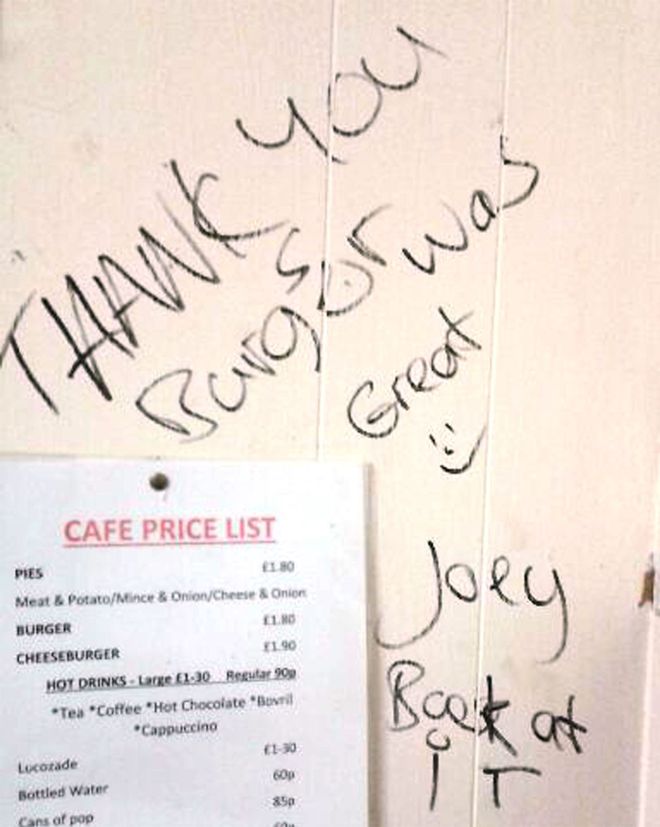 THANK YOU
Burger was
Great
Joey
Back at
IT
CAFE PRICE LIST
PIES £1.80
Meat & Potato/Mince & Onion/Cheese & Onion
BURGER £1.80
CHEESEBURGER £1.90
HOT DRINKS - Large £1-30 Regular 90p
*Tea *Coffee *Hot Chocolate *Bovril
*Cappuccino
Lucozade £1-30
Bottled Water 60p
Cans of pop 85p